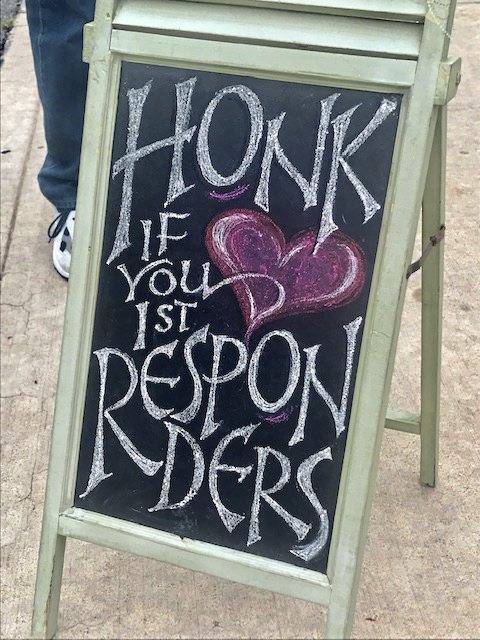 HONK
IF
YOU
1ST
RESPON
DERS